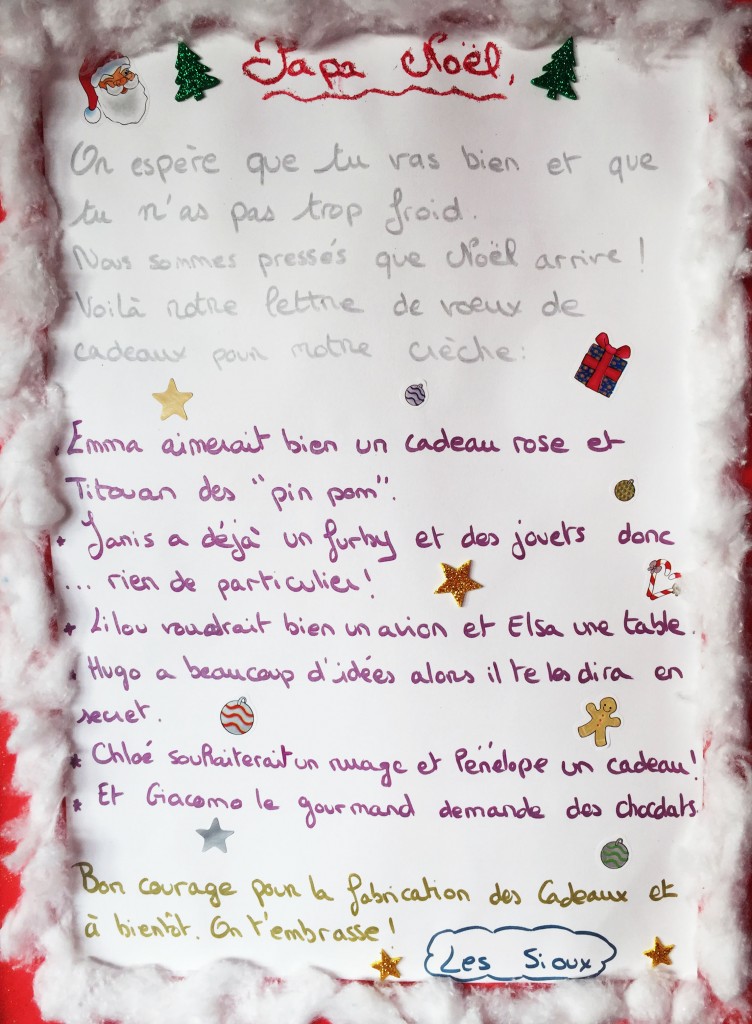 Papa Noël,
On espère que tu vas bien et que
tu n'as pas trop froid.
Nous sommes pressés que Noël arrive !
Voilà notre lettre de vœux de
cadeaux pour notre crèche :
. Emma aimerait bien un cadeau rose et
Titouan des "pin pom".
* Janis a déjà un furby et des jouets donc
... rien de particulier !
* Lilou voudrait bien un avion et Elsa une table.
. Hugo a beaucoup d'idées alors il te les dira en
secret.
* Chloé souhaiterait un nuage et Pénélope un cadeau !
* Et Giacomo le gourmand demande des chocolats.
Bon courage pour la fabrication des Cadeaux et
à bientôt. On t'embrasse !
Les Sioux